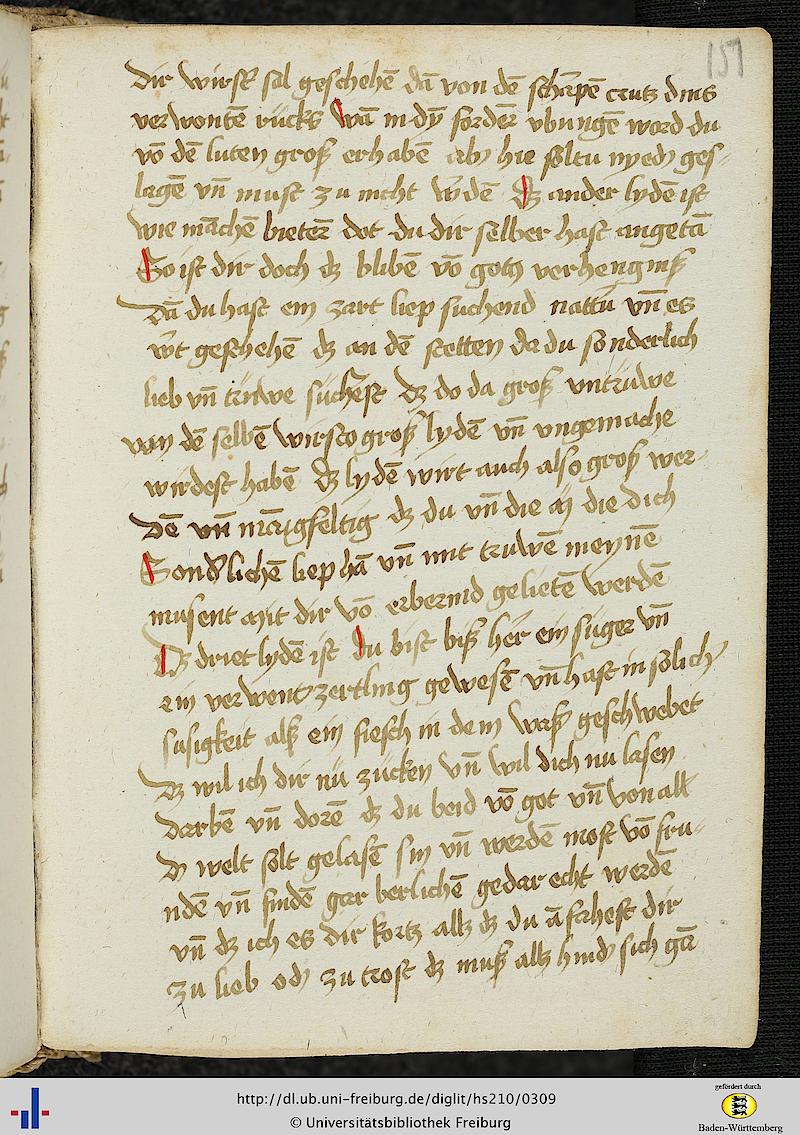 151
Dir wirst sal geschehē dā von dē scharpē crutz dins
verwontē rücks wan in dȳ fordeꝛ vbungē word du
vō dē luten groß erhabē ab hie soltu nyed ges-
lagē vn̄ must zu nicht w̄dē Dz ander lydē ist
wie māchē bieterē dot du dir selber hast angetā
So ist dir doch dz blibē vō gotz verhengniß
Dā du hast ein zart liep suchend nattu vn̄ es
w̄t geschehē dz an dē stetten da du sonderlich
lieb vn̄ trüwe süchest dz do da groß vntrüwe
von dē selbē wirst groß lydē vn̄ vngemache
wirdest habē Dz lydē wirt auch also groß wer-
Dē vn̄ māigfeltig dz du vn̄ die in die dich
Sondlichē liep hā vn̄ mit truwē meynē
musent mit dir vō erbermd gelietē werdē
Dz driet lydē ist du bist biß her ein süger vn̄
ein verwent zertling gewesē vn̄ hast in solich
susigkeit alß ein fiesch in dem waß geschwebet
Dz wil ich dir nü zücken vn̄ wil dich nu lasen
darbē vn̄ dorē dz du beid vō got vn̄ von all
d welt solt gelasē sin vn̄ werdē most vō fru-
ndē vn̄ findē gar berlichē gedar echt werdē
vn̄ dz ich es dir kortz allz dz du āfahest dir
zu lieb od zu trost dz muß allz hind sich gā
http://dl.ub.uni-freiburg.de/diglit/hs210/0309
© Universitätsbibliothek Freiburg
gefördert durch
Baden-Württemberg